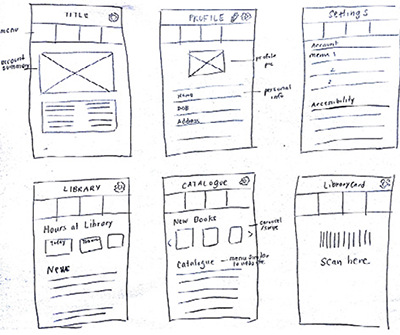 TITLE
menu
account
summary
PROFILE
profile
pic
Name
DOB
Address
personal
info
Settings
Account
menu 1
2
3
Accessibility
LIBRARY
Hours at Library
Today
News
CATALOGUE
New Books
carousel
Catalogue
menu similar
to website
Library Card
Scan here.